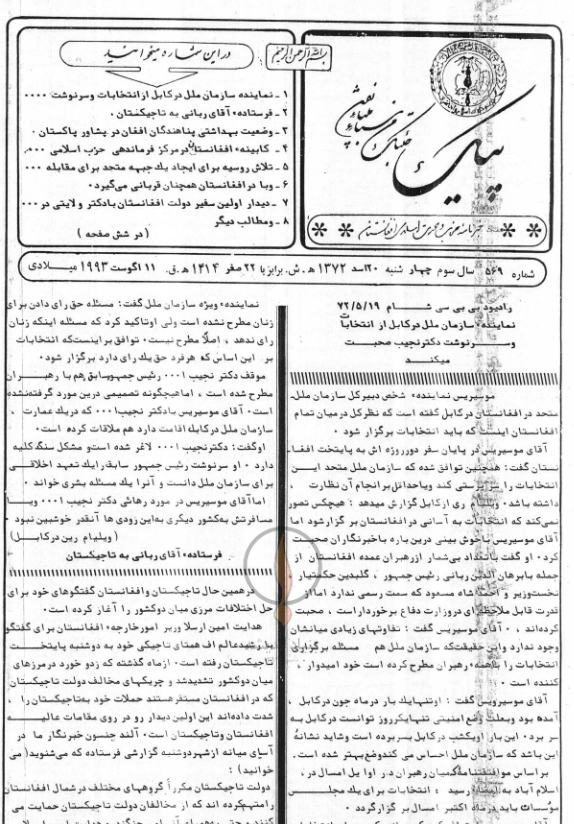 بسم الله الرحمن الرحیم
پیک
در این شماره میخوانید
۱ ـ نماینده سازمان ملل درکابل از انتخابات وسرنوشت ۰۰۰۰
۲ ـ فرستاده آقای ربانی به تاجیکستان ۰
۳ ـ وضعیت بهداشتی پناهندگان افغان در پشاور پاکستان ۰
۴ ـ کابینه افغانستان درمرکز فرماندهی حزب اسلامی ۰۰۰
۵ ـ تلاش روسیه برای ایجاد یک جبهه متحد برای مقابله ۰۰۰
۶ ـ وبا در افغانستان همچنان قربانی می‌گیرد۰
۷ ـ دیدار اولین سفیر دولت افغانستان بادکتر ولایتی در ۰۰۰
۸ ـ ومطالب دیگر
( در شش صفحه )
شماره ۵۶۹ سال سوم چهار شنبه ۲۰ اسد ۱۳۷۲ ه . ش. برابر با ۲۲ صفر ۱۴۱۴ ه .ق. ۱۱ اگوست ۱۹۹۳ میلادی
رادیو بی بی سی شام ۷۲/۵/۱۹
نماینده سازمان ملل درکابل از انتخابات
وسرنوشت دکترنجیب صحبت
میکند
موسیریس نماینده شخص دبیرکل سازمان ملل
متحد در افغانستان درکابل گفته است که نظرکل درمیان تمام
افغانستان اینست که باید انتخابات برگزار شود ۰
آقای موسیریس در پایان سفر دوروزه اش به پایتخت افغا
نستان گفت: همچنین توافق شده که سازمان ملل متحد این
انتخابات را سرپرستی کند ویاحداقل بر انجام آن نظارت
داشته باشد۰ ویلیام ری ازکابل گزارش میدهد : هیچکس تصور
نمی‌کند که انتخابات به آسانی در افغانستان برگزار شود اما
آقای موسیریس باخوش بینی درین باره باخبرنگاران صحبت
کرد۰ او گفت باتعداد بی‌شمار ازرهبران عمده افغانستان از
جمله بابرهان الدین ربانی رئیس جمهور ، گلبدین حکمتیار
نخست‌وزیر و احمد شاه مسعود که سمت رسمی ندارد اما از
قدرت قابل ملاحظه‌ای دروزارت دفاع برخوردار است ، صحبت
کرده‌اند ، ۰ آقای موسیریس گفت : تفاوتهای زیادی میانشان
وجود ندارد و این حقیقت‌که سازمان ملل هم مسئله برگزاری
انتخابات را باهمه رهبران مطرح کرده است خود امیدوار
کننده است ۰
آقای موسیریس گفت : او تنهایک بار درماه جون درکابل
آمده بود وبعلت وضع امنیتی تنهایکروز توانست درکابل به
سر برد۰ این بار اویکشب درکابل بسر برده است وشاید نشانه
این باشد که سازمان ملل احساس می کندوضع بهتر شده است ۰
بر اساس موافقتنامه میان رهبران در اوایل امسال در ،
اسلام آباد به امضا رسید : انتخابات برای یک مجلس
مؤسسات باید درماه اکتبر امسال بر گزارگردد ۰
نماینده ویژه سازمان ملل گفت: مسئله حق رای دادن برای
زنان مطرح نشده است ولی اوتاکید کرد که مسئله اینکه زنان
رای ندهد ، اصلاً مطرح نیست ۰ توافق بر اینست‌که انتخابات
بر این اساس که هرفرد حق یک رای دارد برگزار شود۰
موقف دکتر نجیب ۰۰۰۱ رئیس جمهورسابق هم با رهبران
مطرح شده است ، اماهیچگونه تصمیمی درین مورد گرفته‌نشده
است۰ آقای موسیریس بادکتر نجیب۰۰۰۱ که دریک عمارت ،
سازمان ملل درکابل اقامت دارد هم ملاقات کرده است ۰
او گفت: دکترنجیب ۰۰۰۱ لاغر شده است‌و مشکل سنگ کلیه
دارد ۰ او سرنوشت رئیس جمهور سابق‌را یک تعهد اخلاقی
برای سازمان ملل دانست و آنرا یک مسئله بشری خواند ۰
اما آقای موسیریس در مورد رهائی دکتر نجیب ۰۰۰۱ ویا
مسافرتش به‌کشور دیگری به‌این زودی ها آنقدر خوشبین نبود ۰
( ویلیام رین درکابل )
فرستاده آقای ربانی به تاجیکستان
درهمین حال تاجیکستان و افغانستان گفتگوهای خود برای
حل اختلافات مرزی میان دوکشور را آغاز کرده است۰
هدایت امین ارسلا وزیر امورخارجه افغانستان برای گفتگو
با رشیدعالم اف همتای تاجیکی خود به دوشنبه پایتخت
تاجیکستان رفته است۰ ازماه گذشته که زدو خورد درمرزهای
میان دوکشور تشدیدشد و چریکهای مخالف دولت تاجیکستان
که در افغانستان مستقر هستند حملات خود به‌تاجیکستان را ،
شدت داده‌اند این اولین دیدار رو در روی مقامات عالیه
افغانستان وتاجیکستان است۰ آلند جنسون خبرنگار ما در
آسیای میانه ازشهردوشنبه گزارشی فرستاده که می‌شنوید( می
خوانید ) :
دولت تاجیکستان مکرراً گروههای مختلف در شمال افغانستان
را متهم کرده اند که از مخالفان دولت تاجیکستان حمایت می